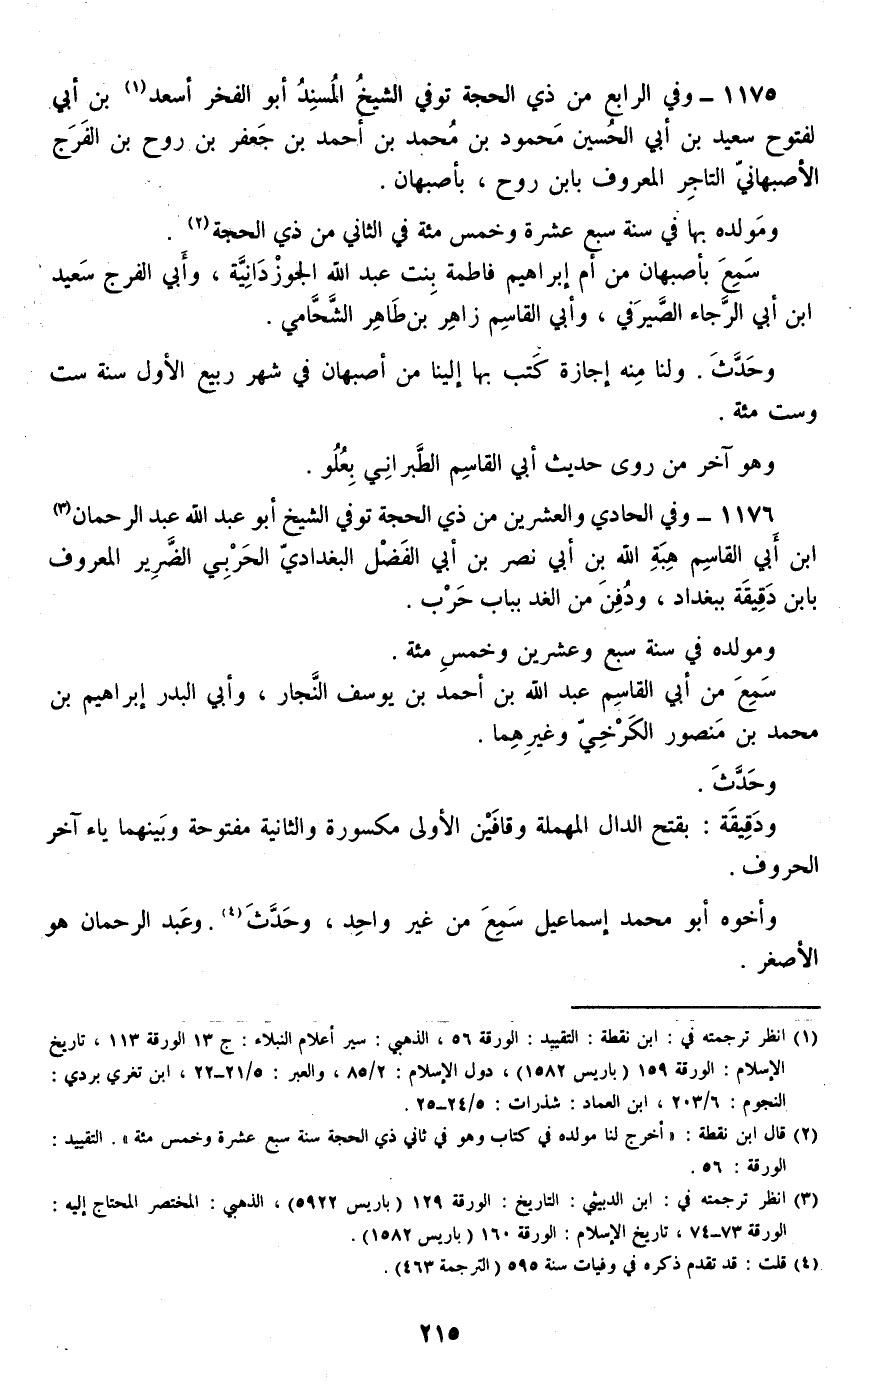 ١١٧٥ ــ وفي الرابع من ذي الحجة توفي الشيخُ المُسنِدُ أبو الفخر أسعد(١) بن أبي
لفتوح سعيد بن أبي الحُسين مَحمود بن مُحمد بن أحمد بن جَعفر بن روح بن الفَرَج
الأصبهانيّ التاجِر المعروف بابن روح ، بأصبهان .
ومَولده بها في سنة سبع عشرة وخمس مئة في الثاني من ذي الحجة(٢) .
سَمِعَ بأصبهان من أم إبراهيم فاطمة بِنت عبد الله الجوزْدَانِيَّة ، وأَبي الفرج سَعيد
ابن أبي الرَّجاء الصَّيرَفي ، وأبي القاسِم زاهِر بن طَاهِر الشَّحَّامي .
وحَدَّثَ . ولنا مِنه إجازة كَتب بها إلينا من أصبهان في شهر ربيع الأول سنة ست
وست مئة .
وهو آخر من روى حديث أبي القاسِم الطَّبرانِي بِعُلُو .
١١٧٦ ــ وفي الحادي والعشرين من ذي الحجة توفي الشيخ أبو عبد الله عبد الرحمان(٣)
ابن أَبي القاسِم هِبَةِ الله بن أبي نصر بن أبي الفَضْل البغداديّ الحَرْبِي الضَّرِير المعروف
بابن دَقِيقَة ببغداد ، ودُفِنَ من الغد بباب حَرْب .
ومولده في سنة سبع وعشرين وخمسِ مئة .
سَمِعَ من أبي القاسِم عبد الله بن أحمد بن يوسف النَّجار ، وأبي البدر إبراهيم بن
محمد بن مَنصور الكَرْخِيّ وغيرِهِما .
وحَدَّثَ .
ودَقِيقَة : بفتح الدال المهملة وقافَيْن الأولى مكسورة والثانية مفتوحة وبَينهما ياء آخر
الحروف .
وأخوه أبو محمد إسماعيل سَمِعَ من غير واحِد ، وحَدَّثَ(٤) . وعَبد الرحمان هو
الأصغر .
(١) انظر ترجمته في : ابن نقطة : التقييد : الورقة ٥٦ ، الذهبي : سير أعلام النبلاء : ج ١٣ الورقة ١١٣ ، تاريخ
الإسلام : الورقة ١٥٩ (باريس ١٥٨٢) ، دول الإسلام : ٨٥/٢ ، والعبر : ٢١/٥ــ٢٢ ، ابن تغري بردي :
النجوم : ٢٠٣/٦ ، ابن العماد : شذرات : ٢٤/٥ــ٢٥ .
(٢) قال ابن نقطة : «أخرج لنا مولده في كتاب وهو في ثاني ذي الحجة سنة سبع عشرة وخمس مئة» . التقييد :
الورقة : ٥٦ .
(٣) انظر ترجمته في : ابن الدبيثي : التاريخ : الورقة ١٢٩ (باريس ٥٩٢٢) ، الذهبي : المختصر المحتاج إليه :
الورقة ٧٣ــ٧٤ ، تاريخ الإسلام : الورقة ١٦٠ (باريس ١٥٨٢) .
(٤) قلت : قد تقدم ذكره في وفيات سنة ٥٩٥ (الترجمة ٤٦٣) .
٢١٥